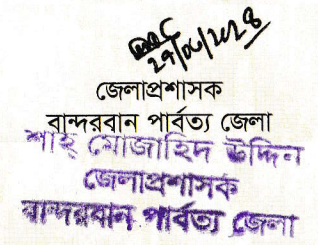 ২৭/০৮/২০২৪
জেলাপ্রশাসক
বান্দরবান পার্বত্য জেলা
শাহ্ মোজাহিদ উদ্দিন
জেলাপ্রশাসক
বান্দরবান পার্বত্য জেলা